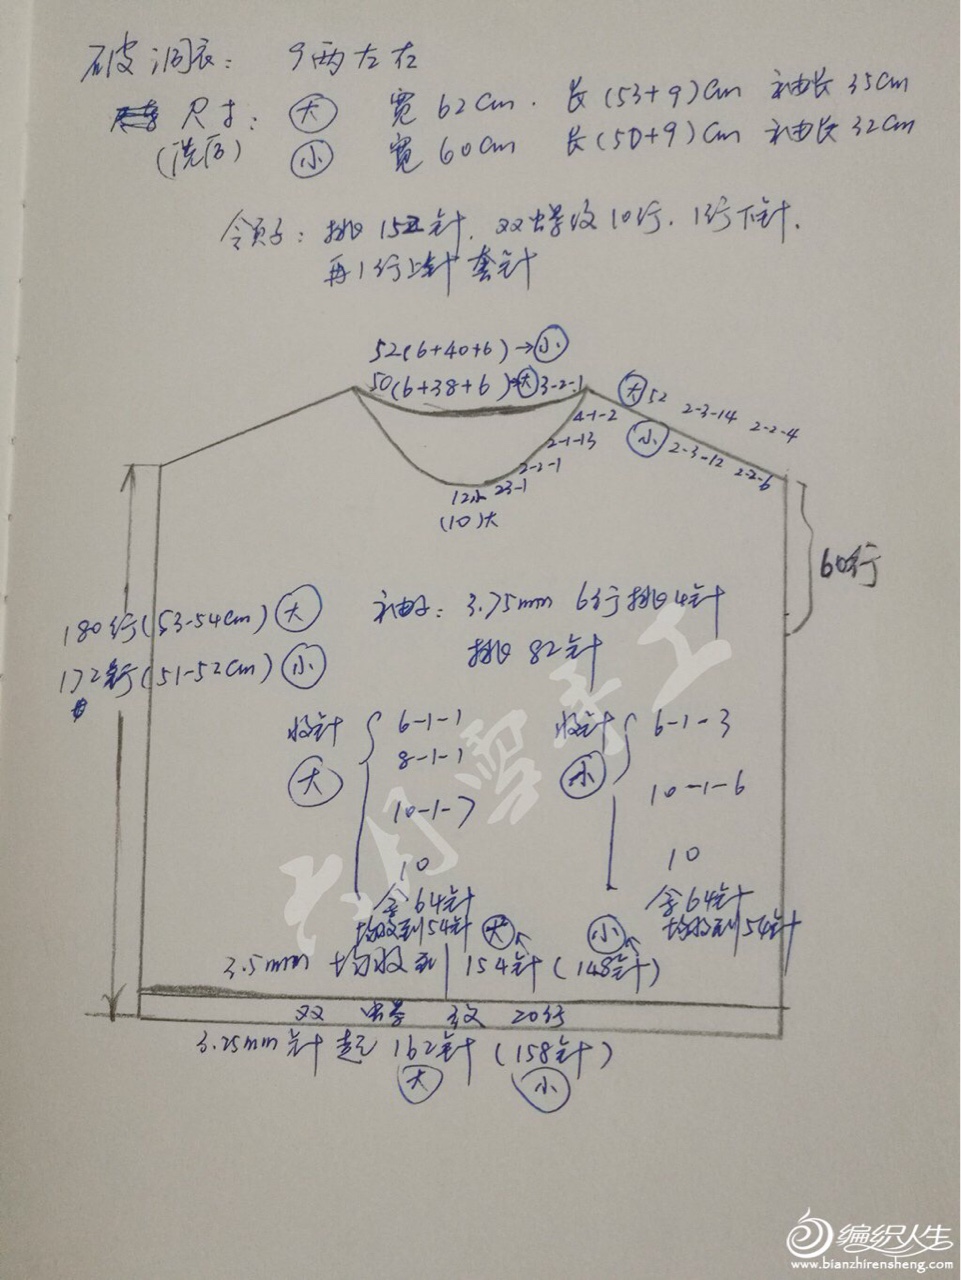 破洞衣: 9两左右
尺寸: 大 宽62cm. 长(53+9)cm 袖长35cm
(洗后) 小 宽60cm 长(50+9)cm 袖长32cm
领子: 挑152针. 双螺纹10行. 1行下针.
再1行上针 套针
52(6+40+6)→小
50(6+38+6)→大 3-2-1
大 52 2-3-14 2-2-4
小 2-3-12 2-2-6
4-1-2
2-1-13
2-2-1
12小 23-1
(10)大
60行
180行(53-54cm)大
172行(51-52cm)小
袖子: 3.75mm 6行挑4针
挑82针
收针 大
6-1-1
8-1-1
10-1-7
10
余64针
均收到54针
收针 小
6-1-3
10-1-6
10
余64针
均收到54针
大 小
3.5mm 均收到154针(148针)
双螺纹20行
3.25mm针起162针(158针)
大 小
六月雪手工
编织人生
www.bianzhirensheng.com